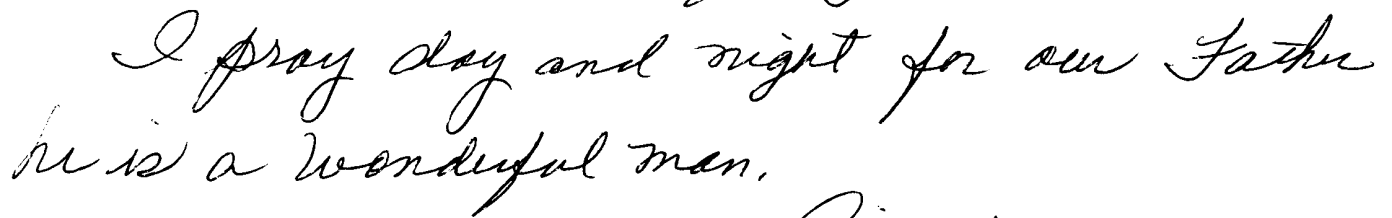 I pray day and night for our Father
he is a wonderful man.